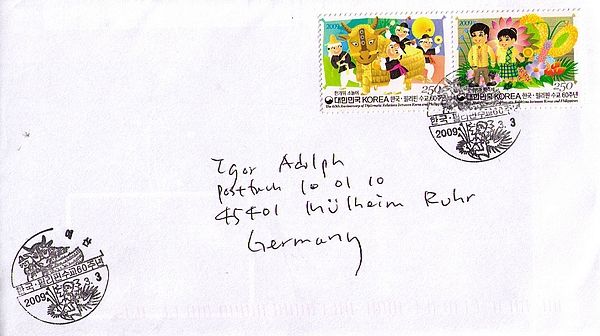 2009
2009
한가위 소놀이
250
250
대한민국 KOREA 한국·필리핀 수교 60주년
대한민국 KOREA 한국·필리핀 수교 60주년
The 60th Anniversary of Diplomatic Relations between Korea and Philippines
한국·필리핀수교60주년
2009. 3. 3
Igor Adolph
postfach 10 01 10
45401 Mülheim Ruhr
Germany
한국·필리핀수교60주년
2009. 3. 3